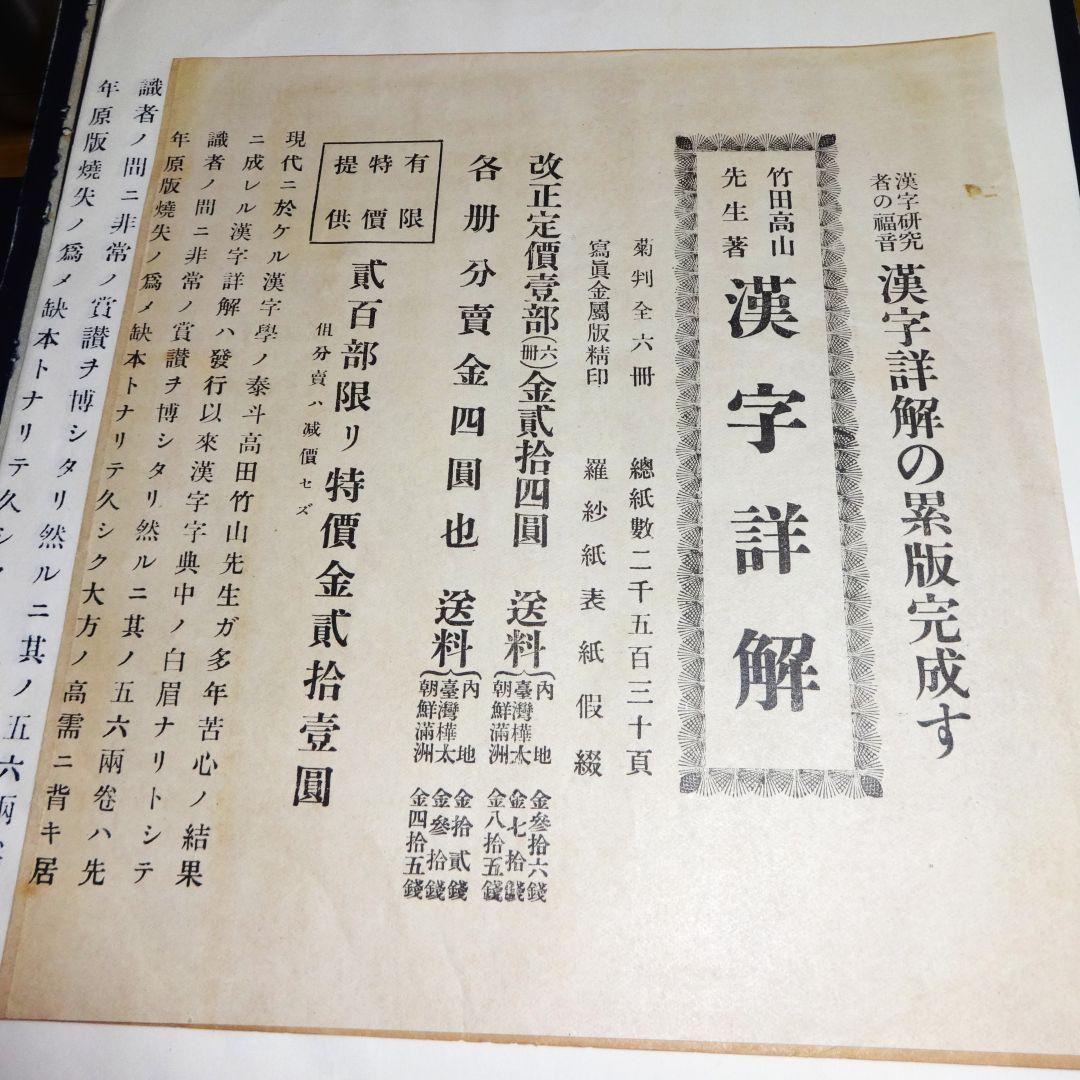 漢字研究
者の福音
漢字詳解の累版完成す
竹田高山
先生著
漢字詳解
菊判全六冊 總紙數二千五百三十頁
寫眞金屬版精印 羅紗紙表紙假綴
改正定價壹部(六冊)金貳拾四圓 送料
内地 金參拾六錢
臺灣樺太 金七拾錢
朝鮮滿洲 金八拾五錢
各册分賣金四圓也 送料
内地 金拾貳錢
臺灣樺太 金參拾錢
朝鮮滿洲 金四拾五錢
有限
特價
提供
貳百部限リ特價金貳拾壹圓
但分賣ハ減價セズ
現代ニ於ケル漢字學ノ泰斗高田竹山先生ガ多年苦心ノ結果
ニ成レル漢字詳解ハ發行以來漢字字典中ノ白眉ナリトシテ
識者ノ間ニ非常ノ賞讃ヲ博シタリ然ルニ其ノ五六兩卷ハ先
年原版燒失ノ爲メ缺本トナリテ久シク大方ノ高需ニ背キ居
識者ノ間ニ非常ノ賞讃ヲ博シタリ然ルニ其ノ五六兩
年原版燒失ノ爲メ缺本トナリテ久シ